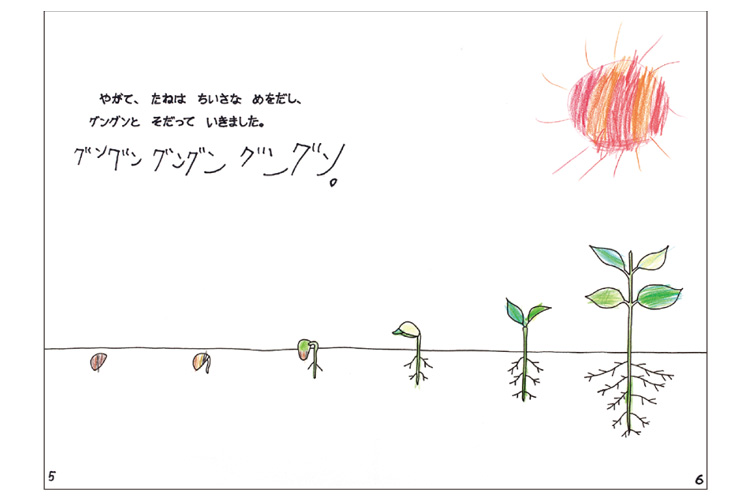 やがて、 たねは ちいさな めをだし、
グングンと そだって いきました。
グングン グングン グングン。
5
6